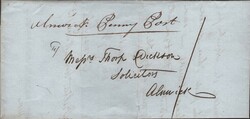 Alnwick Penny Post
Messrs Thorp & Dickson
Solicitors
Alnwick